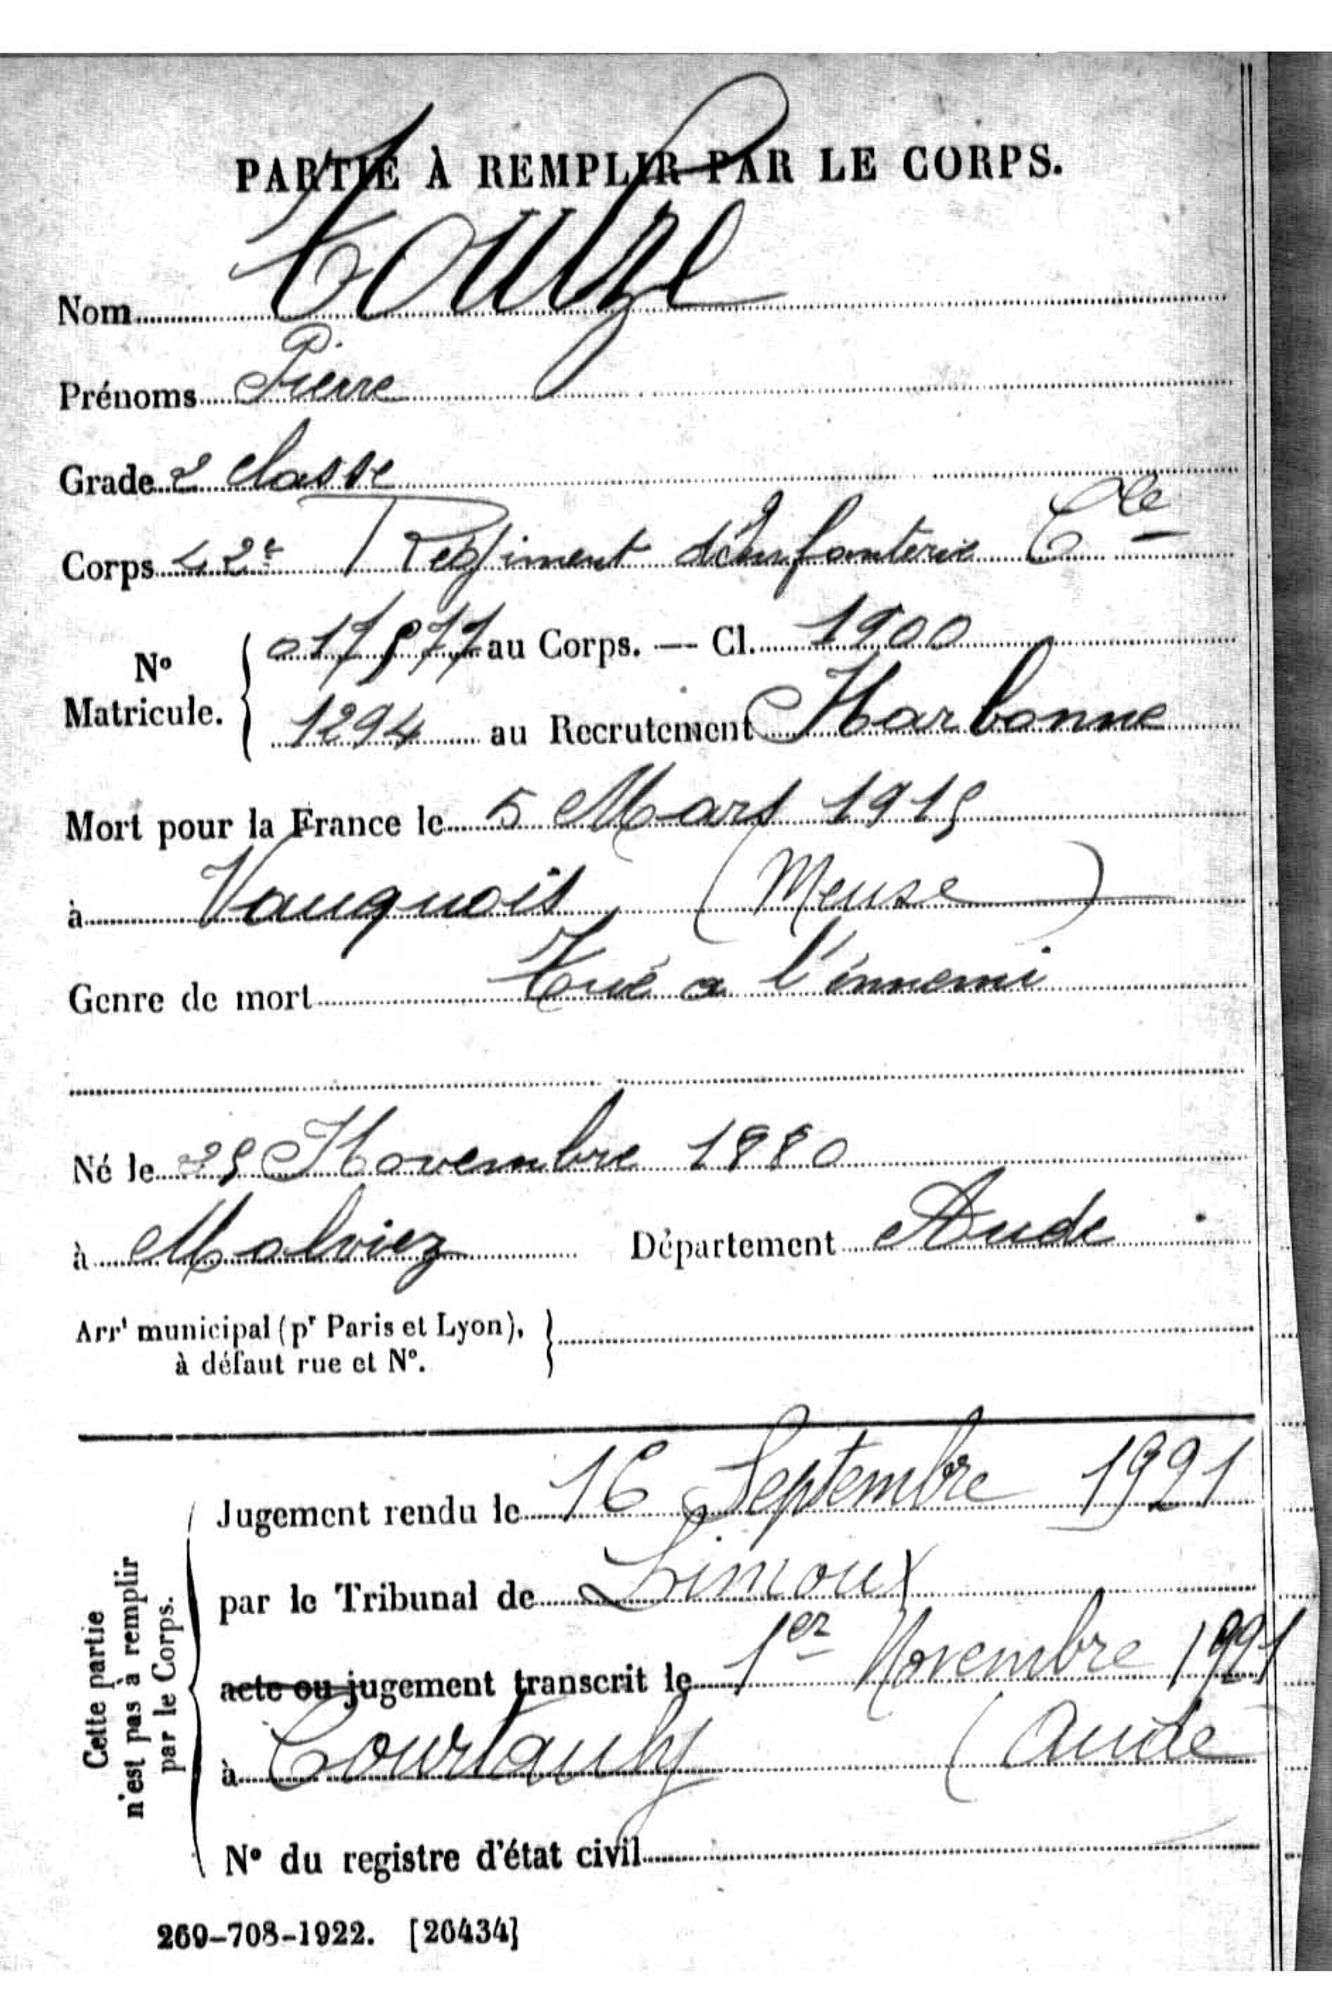 PARTIE À REMPLIR PAR LE CORPS.
Nom Touzé
Prénoms Pierre
Grade 2 classe
Corps 42e Régiment d'Infanterie Cle
No Matricule. 017577 au Corps. — Cl. 1900
1294 au Recrutement Narbonne
Mort pour la France le 5 Mars 1915
à Vauquois (Meuse)
Genre de mort Tué a l'énnemi
Né le 25 Novembre 1880
à Malviez Département Aude
Arrt municipal (pr Paris et Lyon),
à défaut rue et No.
Cette partie
n'est pas à remplir
par le Corps.
Jugement rendu le 16 Septembre 1921
par le Tribunal de Limoux
acte ou jugement transcrit le 1er Novembre 1921
à Courtauly (Aude
No du registre d'état civil
269-708-1922. [26434]